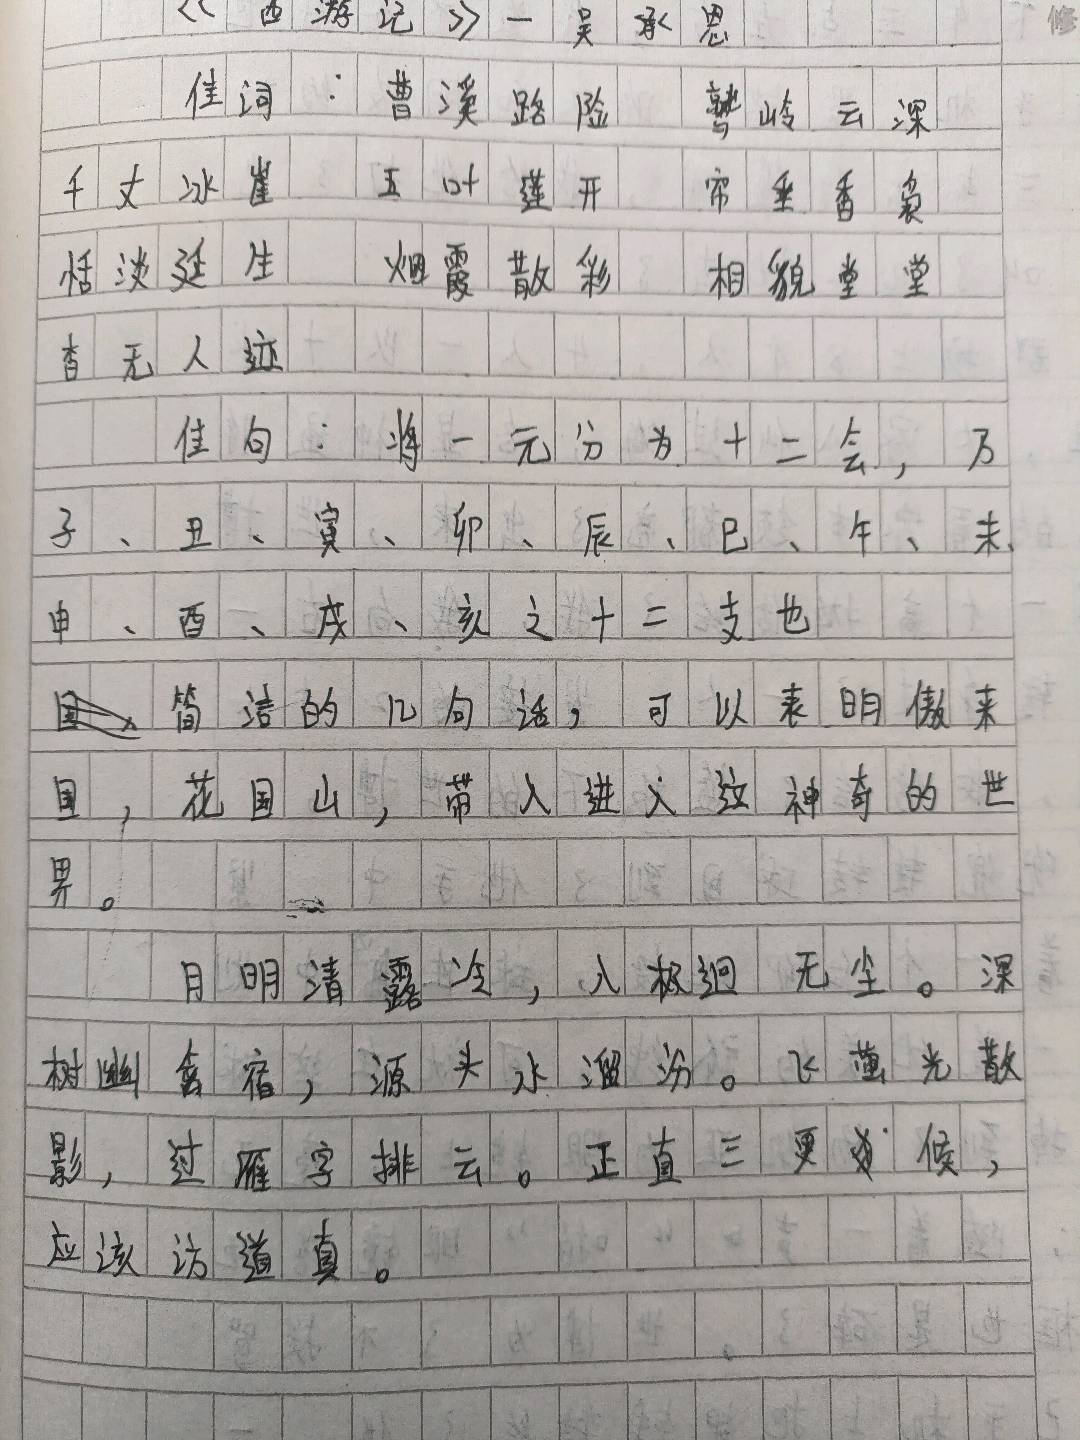 《西游记》一吴承恩
佳词：曹溪路险 鹫岭云深
千丈冰崖 五叶莲开 帘垂香袅
恬淡延生 烟霞散彩 相貌堂堂
杳无人迹
佳句：将一元分为十二会，万
子、丑、寅、卯、辰、巳、午、未、
申、酉、戌、亥之十二支也
简洁的几句话，可以表明傲来
国，花国山，带入进入这神奇的世
界。
月明清露冷，八极迥无尘。深
树幽禽宿，源头水溜汾。飞萤光散
影，过雁字排云。正直三更候，
应该访道真。